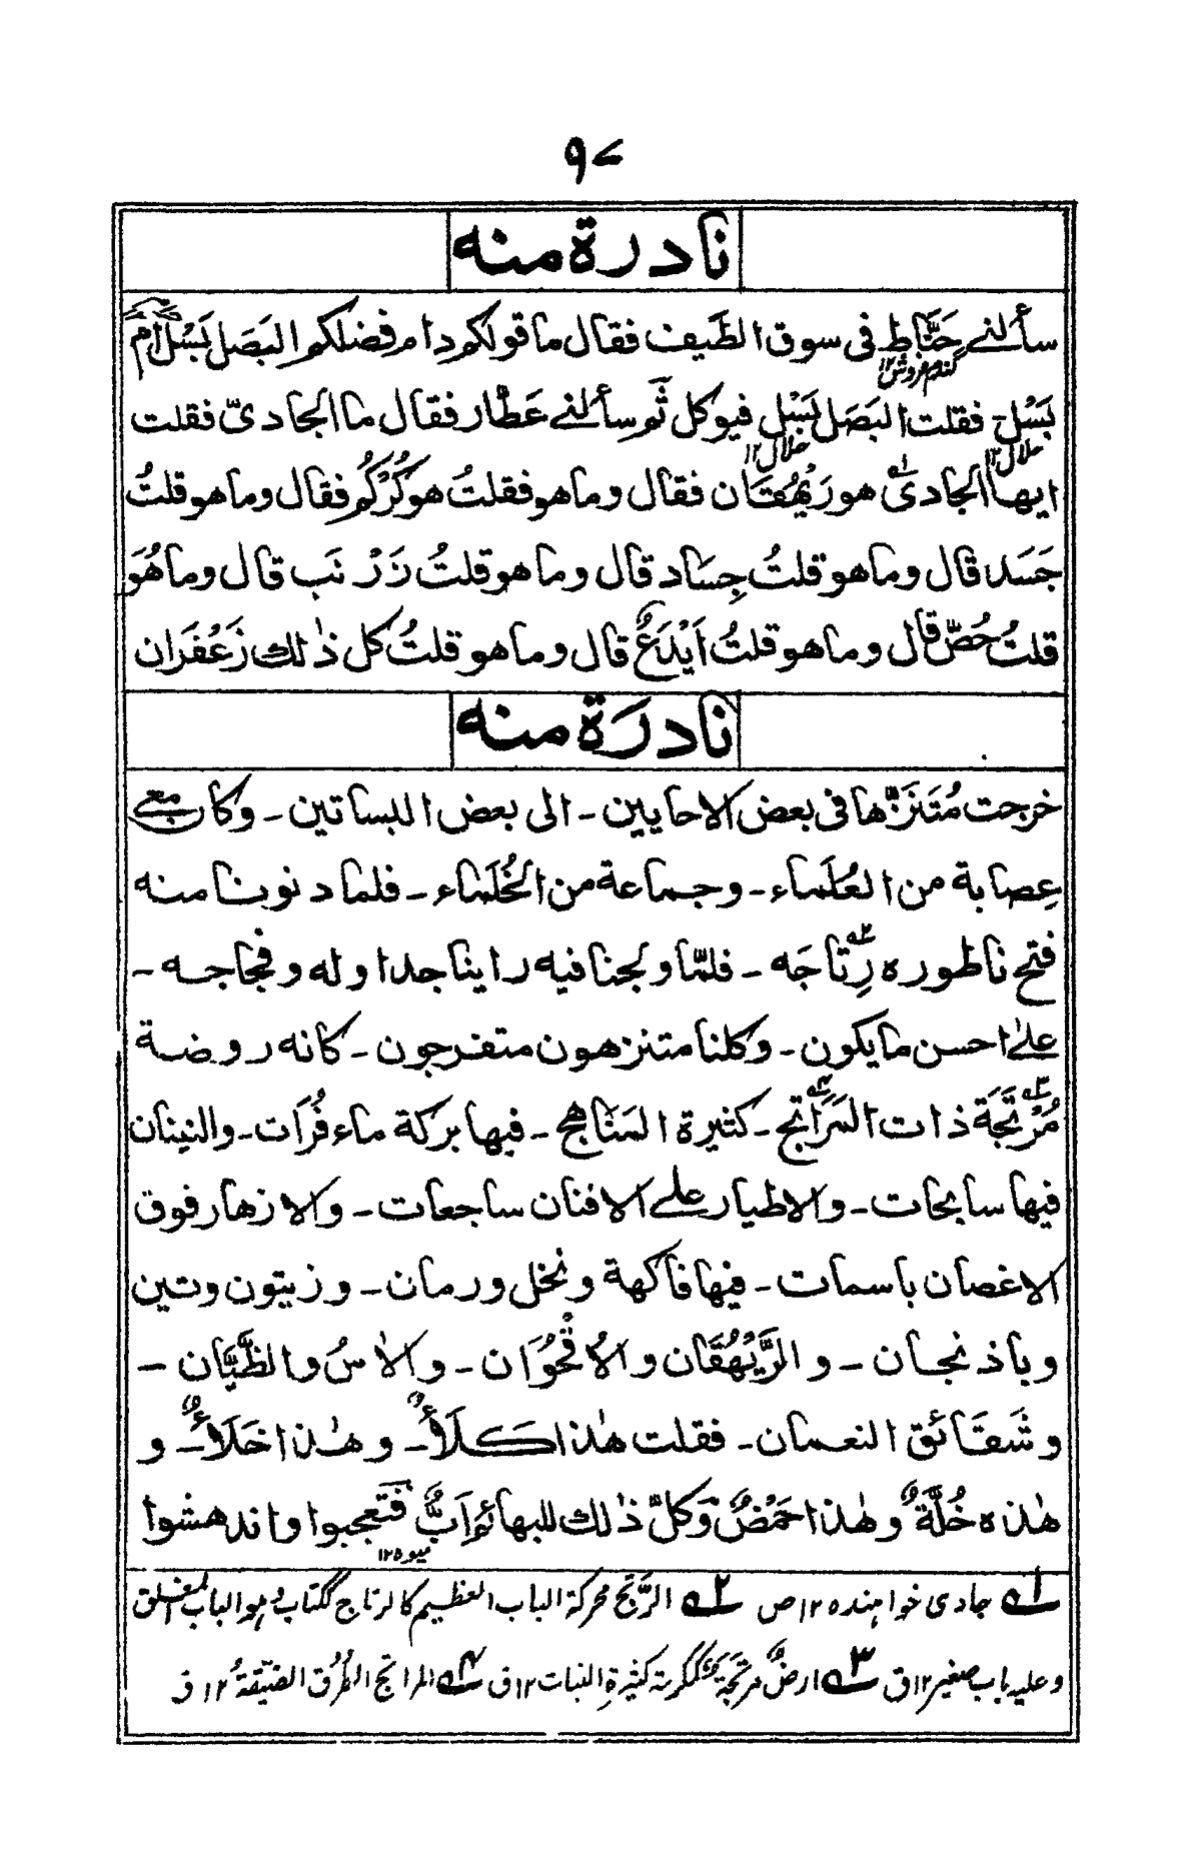 ٩٧
نادرة منه
سألنے حَنَّاط فی سوق الطَّیف فقال ما قولکم دام فضلکم البَصَل بَسْلٌ ام
گندم فروش ١٢
بَسْل۔ فقلت البَصَل بَسْل فیوکل ثم سألنے عَطّار فقال ما الجادیّ فقلت
حلال ١٢ حلال ١٢
ایها الجادیُ هو رَیْهُقَان فقال وما هو فقلتُ هو کُرْکُم فقال وما هو قلتُ
جَسَد قال وما هو قلتُ جِسَاد قال وما هو قلتُ زَرْنَب قال وما هُوَ
قلتُ حُصّ قال وما هو قلتُ اَیْدَعٌ قال وما هو قلتُ کل ذٰلك زَعْفَران
نادرَة منه
خرجت مُتَنَزِّها فی بعض الاحایین ۔ الی بعض البساتین ۔ وکان معے
عِصابة من العُلَماء ۔ وجماعة من الخُلَماء ۔ فلما دنونا منه
فتح ناطوره رِتاجَه ۔ فلمّا ولجنا فیه راینا جداوله وفجاجه ۔
علیٰ احسن مایکون ۔ وکلنا متنزهون متفرجون ۔ کانه روضة
مُرْتَجَة ذات المَرَاتج ۔ کثیرة المَنَاهج ۔ فیها برکة ماء فُرَات ۔ والنینان
فیها سابحات ۔ والاطیار علے الافنان ساجعات ۔ والازهار فوق
الاغصان باسمات ۔ فیها فاکهة ونخل ورمان ۔ وزیتون وتین
وباذنجان ۔ والرَّیْهُقَان والاُقْحُوَان ۔ والاٰسُ والظَّیَّان ۔
وشَقَائق النعمان ۔ فقلت هٰذا کَلَأٌ ۔ وهٰذا خَلَأٌ ۔ و
هٰذه خُلَّةٌ وهٰذا حَمْضٌ وَکلَّ ذٰلك للبهائم اَبٌّ فتَعجبوا واندهشوا
میوه ١٢
١ے جادی خواهنده ١٢ ص ٢ے الرَّتَج محرکة الباب العظیم کالرتاج ککتاب وهو الباب المغلق
وعلیه باب صغیر ١٢ق ٣ے ارضٌ مرتجة کمکرمة کثیرة النبات ١٢ق ٤ے المراتج الطُرُق الضیّقةُ ١٢ ق